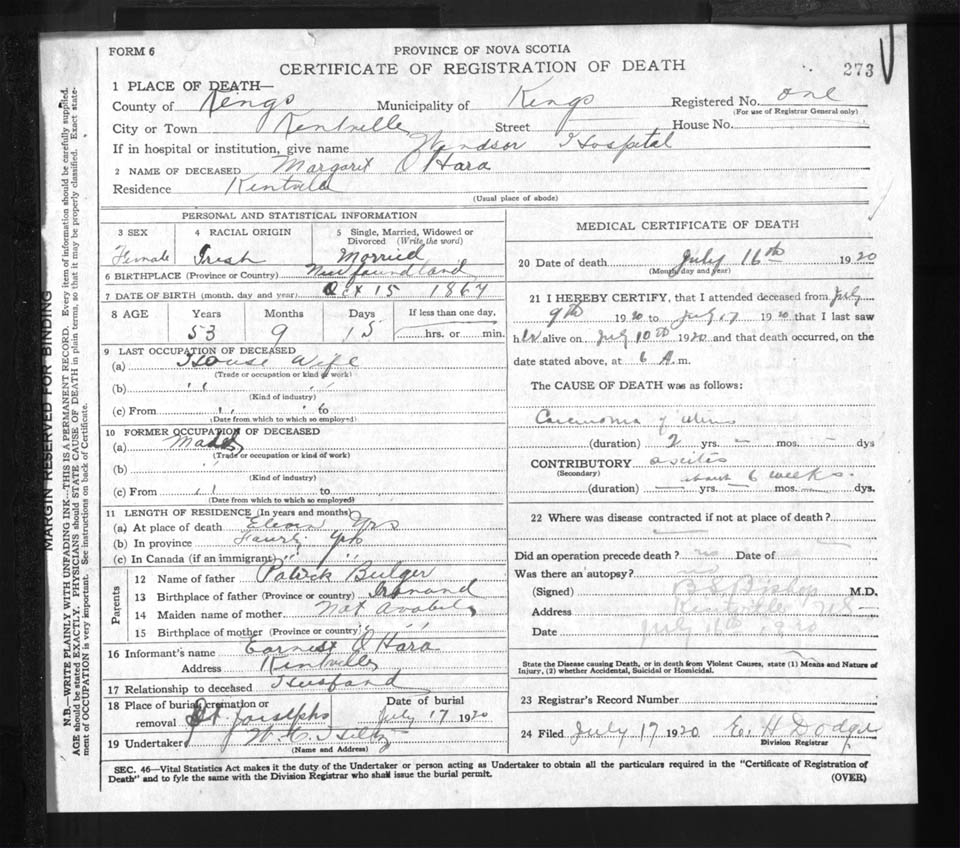 FORM 6
PROVINCE OF NOVA SCOTIA
CERTIFICATE OF REGISTRATION OF DEATH
273
1 PLACE OF DEATH—
County of Kings Municipality of Kings Registered No. one
(For use of Registrar General only)
City or Town Kentville Street House No.
If in hospital or institution, give name Windsor Hospital
2 NAME OF DECEASED Margaret O Hara
Residence Kentville
(Usual place of abode)
PERSONAL AND STATISTICAL INFORMATION
3 SEX 4 RACIAL ORIGIN 5 Single, Married, Widowed or Divorced (Write the word)
Female Irish Married
6 BIRTHPLACE (Province or Country) Newfoundland
7 DATE OF BIRTH (month, day and year) Oct 15 1867
8 AGE Years Months Days If less than one day,
53 9 15 hrs. or min.
9 LAST OCCUPATION OF DECEASED
(a) House Wife
(Trade or occupation or kind of work)
(b) " " " "
(Kind of industry)
(c) From " to "
(Date from which to which so employed)
10 FORMER OCCUPATION OF DECEASED
(a)
(Trade or occupation or kind of work)
(b) "
(Kind of industry)
(c) From " to
(Date from which to which so employed)
11 LENGTH OF RESIDENCE (In years and months)
(a) At place of death Eleven Yrs
(b) In province
(c) In Canada (if an immigrant) " "
Parents
12 Name of father Patrick Bulger
13 Birthplace of father (Province or country)
14 Maiden name of mother Not
15 Birthplace of mother (Province or country) " "
16 Informant's name Earnest O Hara
Address Kentville
17 Relationship to deceased Husband
18 Place of burial, cremation or removal St. Date of burial July 17 1920
19 Undertaker W. C.
(Name and Address)
MEDICAL CERTIFICATE OF DEATH
20 Date of death July 16th 1920
(Month, day and year)
21 I HEREBY CERTIFY, that I attended deceased from July
9th 1920 to July 17 1920 that I last saw
her alive on July 10th 1920 and that death occurred, on the
date stated above, at 6 A.m.
The CAUSE OF DEATH was as follows:
Carcinoma of
(duration) 2 yrs. — mos. — dys
CONTRIBUTORY ascites
(Secondary)
about 6 weeks.
(duration) — yrs. — mos. — dys.
22 Where was disease contracted if not at place of death?
Did an operation precede death? no Date of
Was there an autopsy? no
(Signed) B.S. Bishop M.D.
Address Kentville NS
Date July 16th 1920
State the Disease causing Death, or in death from Violent Causes, state (1) Means and Nature of
Injury, (2) whether Accidental, Suicidal or Homicidal.
23 Registrar's Record Number
24 Filed July 17 1920 E. H Dodge
Division Registrar
SEC. 46—Vital Statistics Act makes it the duty of the Undertaker or person acting as Undertaker to obtain all the particulars required in the "Certificate of Registration of
Death" and to fyle the same with the Division Registrar who shall issue the burial permit.
(OVER)
MARGIN RESERVED FOR BINDING
N.B.—WRITE PLAINLY WITH UNFADING INK—THIS IS A PERMANENT RECORD. Every item of information should be carefully supplied.
AGE should be stated EXACTLY. PHYSICIANS should STATE CAUSE OF DEATH in plain terms, so that it may be properly classified. Exact state-
ment of OCCUPATION is very important. See instructions on back of Certificate.